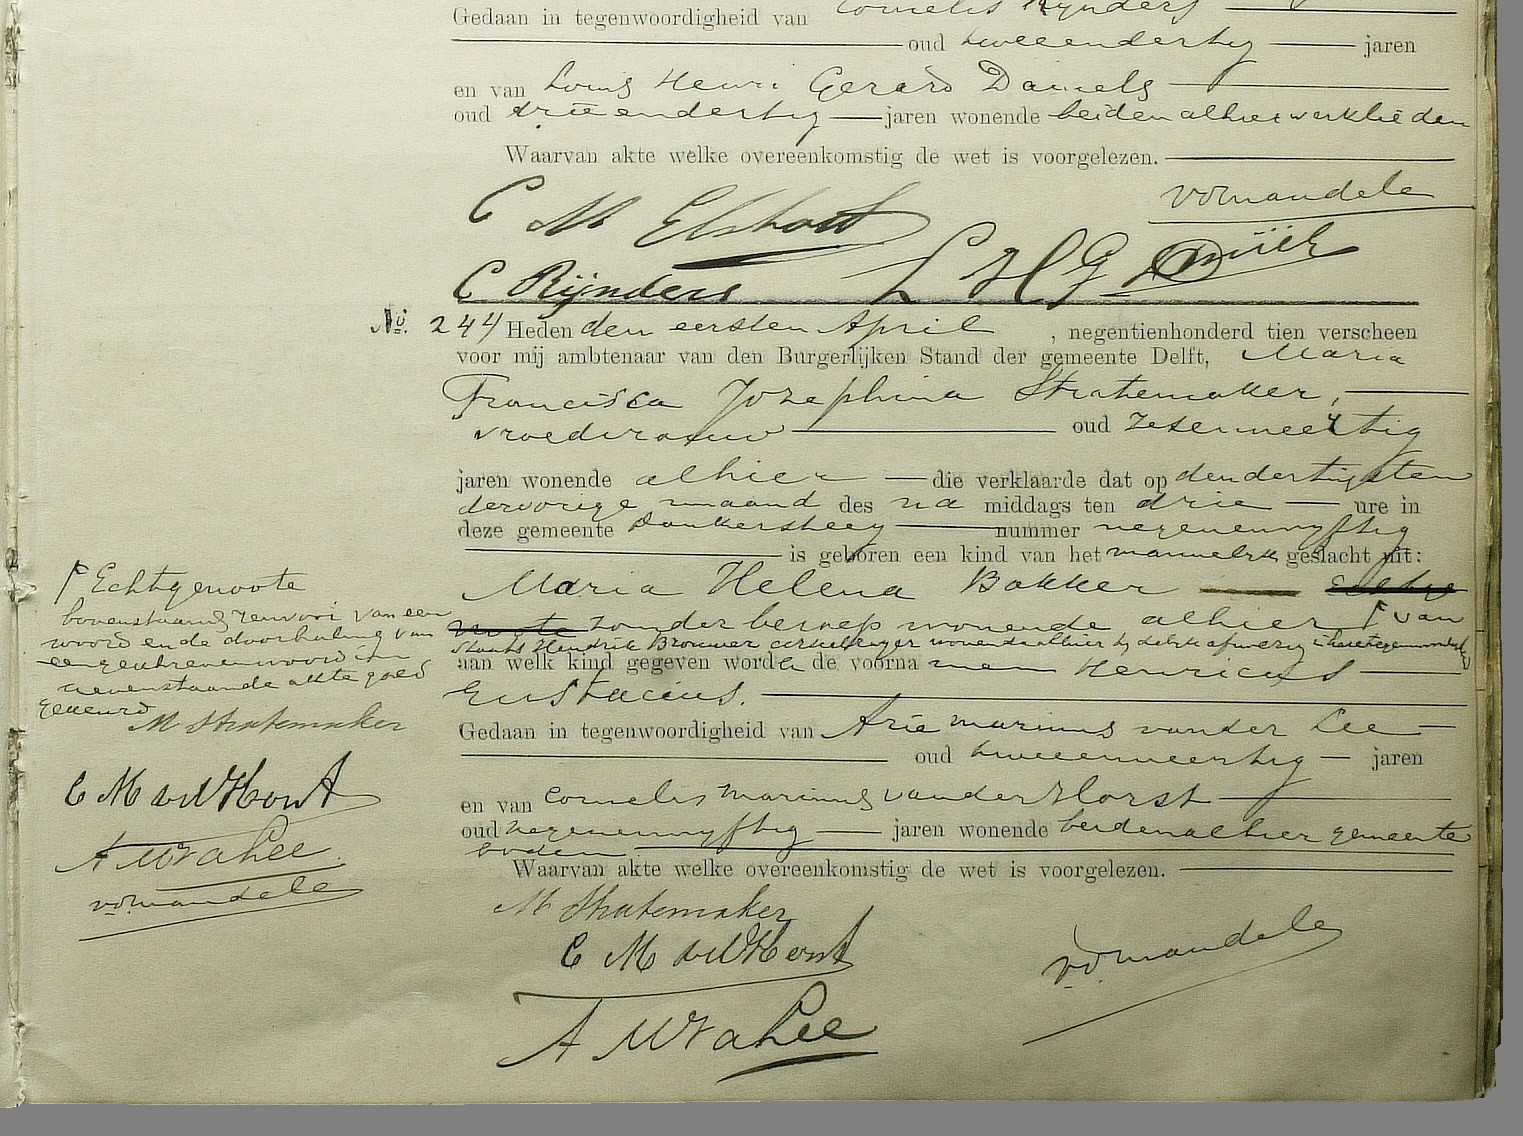 Gedaan in tegenwoordigheid van Cornelis Rijnders
oud tweeendertig jaren
en van Louis Henri Gerard Daniels
oud drieendertig jaren wonende beiden alhier werklieden
Waarvan akte welke overeenkomstig de wet is voorgelezen.
C M Elshout
vdmandele
C Rijnders
L H G
No. 244 Heden den eersten April, negentienhonderd tien verscheen
voor mij ambtenaar van den Burgerlijken Stand der gemeente Delft, Maria
Francisca Jozephina Stratemaker,
vroedvrouw oud zesenveertig
jaren wonende alhier die verklaarde dat op den dertigsten
der vorige maand des na middags ten drie ure in
deze gemeente Donkersteeg nummer negenenvyftig
is geboren een kind van het mannelijk geslacht uit:
Maria Helena Bakker Echtge
noote zonder beroep wonende alhier ┌ van
Hendrik Brouwer wonende alhier by delste afwezig
aan welk kind gegeven worden de voorna men Henricus
Eustacius.
Gedaan in tegenwoordigheid van Arie Marinus van der Lee
oud tweeenveertig jaren
en van Cornelis Marinus van der Horst
oud negenenvyftig jaren wonende beiden alhier gemeente
boden
Waarvan akte welke overeenkomstig de wet is voorgelezen.
M Stratemaker
C M vd Horst
vd.mandele
A M vd Lee
┌ Echtgenoote
bovenstaand renvooi van een
woord en de doorhaling van
een geschreven woord in
nevenstaande akte goed
gekeurd
M Stratemaker
C M vd Horst
A M vd Lee.
vd.mandele